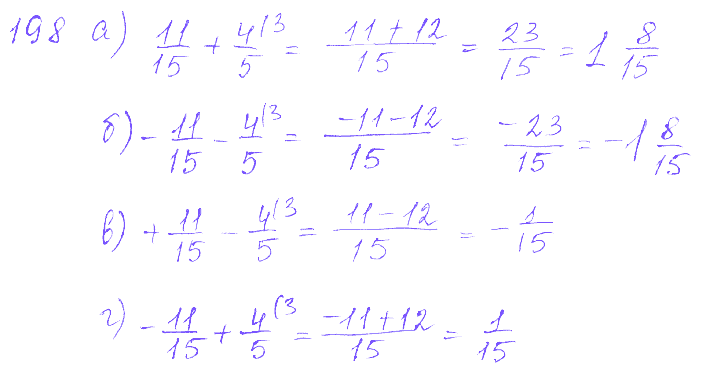 198 а) 11/15 + 4/5 (3 = 11+12/15 = 23/15 = 1 8/15
б) - 11/15 - 4/5 (3 = -11-12/15 = -23/15 = -1 8/15
в) + 11/15 - 4/5 (3 = 11-12/15 = - 1/15
г) - 11/15 + 4/5 (3 = -11+12/15 = 1/15